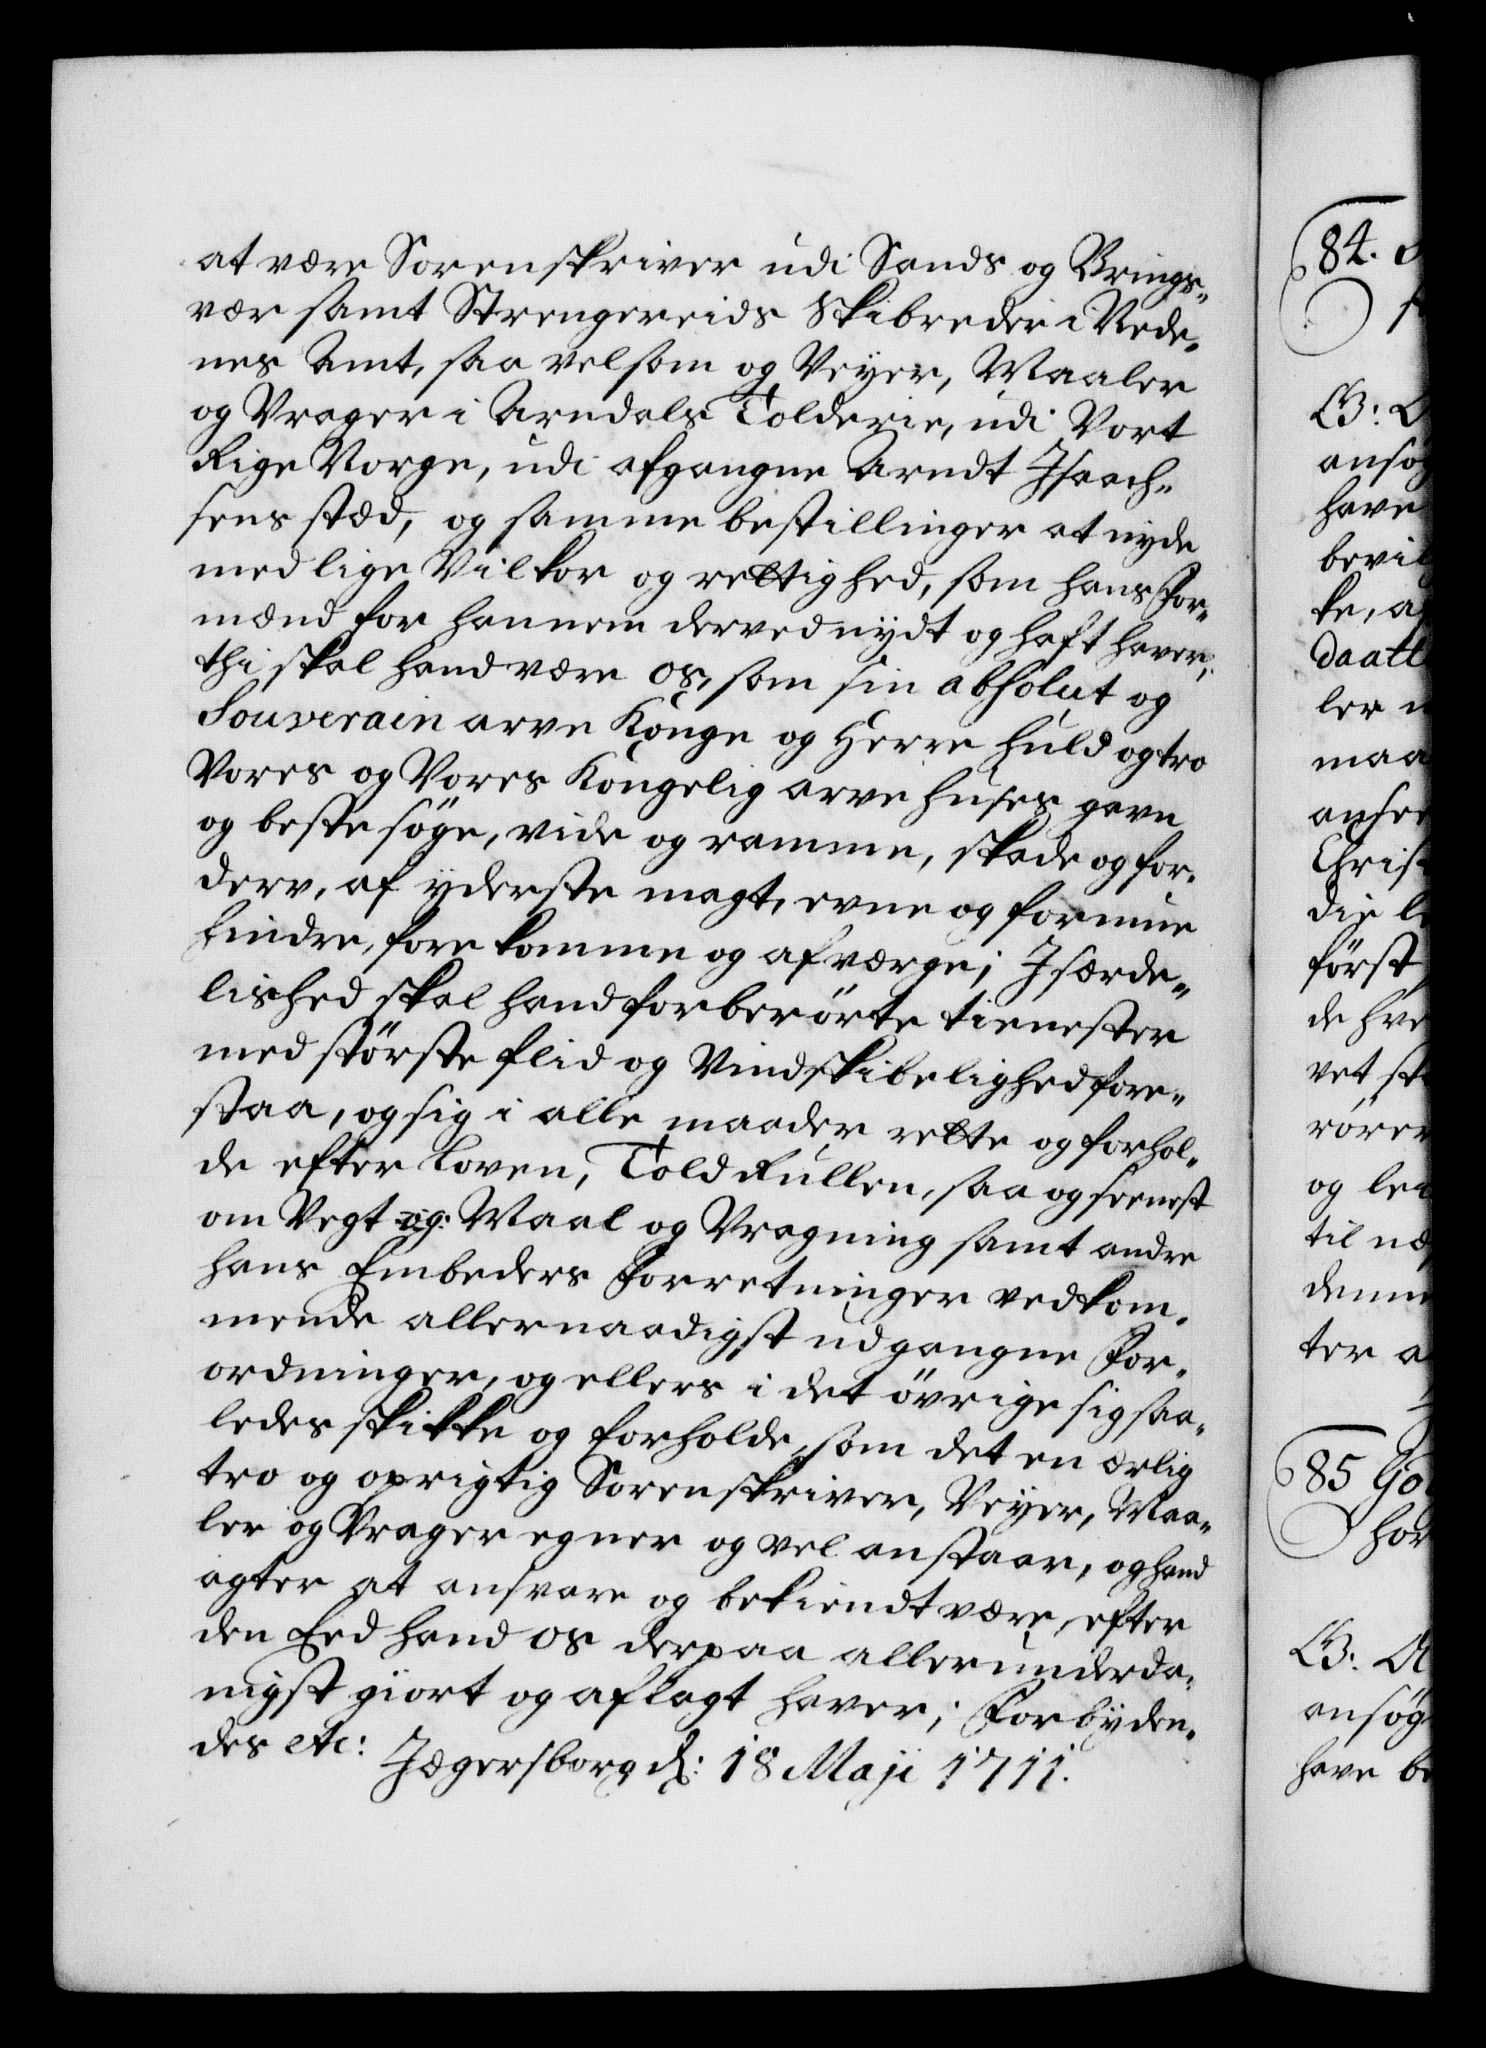 at være Sorenskriver udi Sands og Brings-
vær samt Strengereids Skibreder i Nede-
nes Amt, saa velsom og Veyer, Maaler
og Vrager i Arndals Tolderie, udi Vort
Rige Norge, udi afgangne Arndt Isaach-
sens stæd, og samme bestillinger at nyde
med lige Vilkor og rettighed, som hans For-
mænd for hannem derved nydt og haft haver;
thi skal hand være os, som sin absolut og
Souverain arve Konge og Herre huld og tro
Vores og Vores Kongelig arve huses gavn
og beste søge, vide og ramme, skade og for-
derv, af yderste magt, evne og formue
hindre, forekomme og afværge; Isærde-
lished skal hand forberørte tienester
med største flid og Vindskibelighed fore-
staa, og sig i alle maader rette og forhol-
de efter Loven, Told Rullen, saa og seenest
om Vegt og: Maal og Vragning samt andre
hans Embeders forretninger vedkom-
mende allernaadigst udgangne For-
ordninger, og ellers i det øvrige sig saa-
ledes skikke og forholde, som det en ærlig
tro og oprigtig Sorenskriver, Veyer, Maa-
ler og Vrager egner og vel anstaar, og hand
agter at ansvare og bekiendt være, efter
den Eed hand os derpaa allerunderda-
nigst giort og aflagt haver; Forbyden-
des etc: Jægersborg d: 18 Maji 1711.
84.
B:
ansøg
have
bevil
ke, a
daatt
ler
maa
ansee
Christ
die
først
de hve
vet st
rører
og le
til næ
denne
ter a
85
B:
ansøg
have be